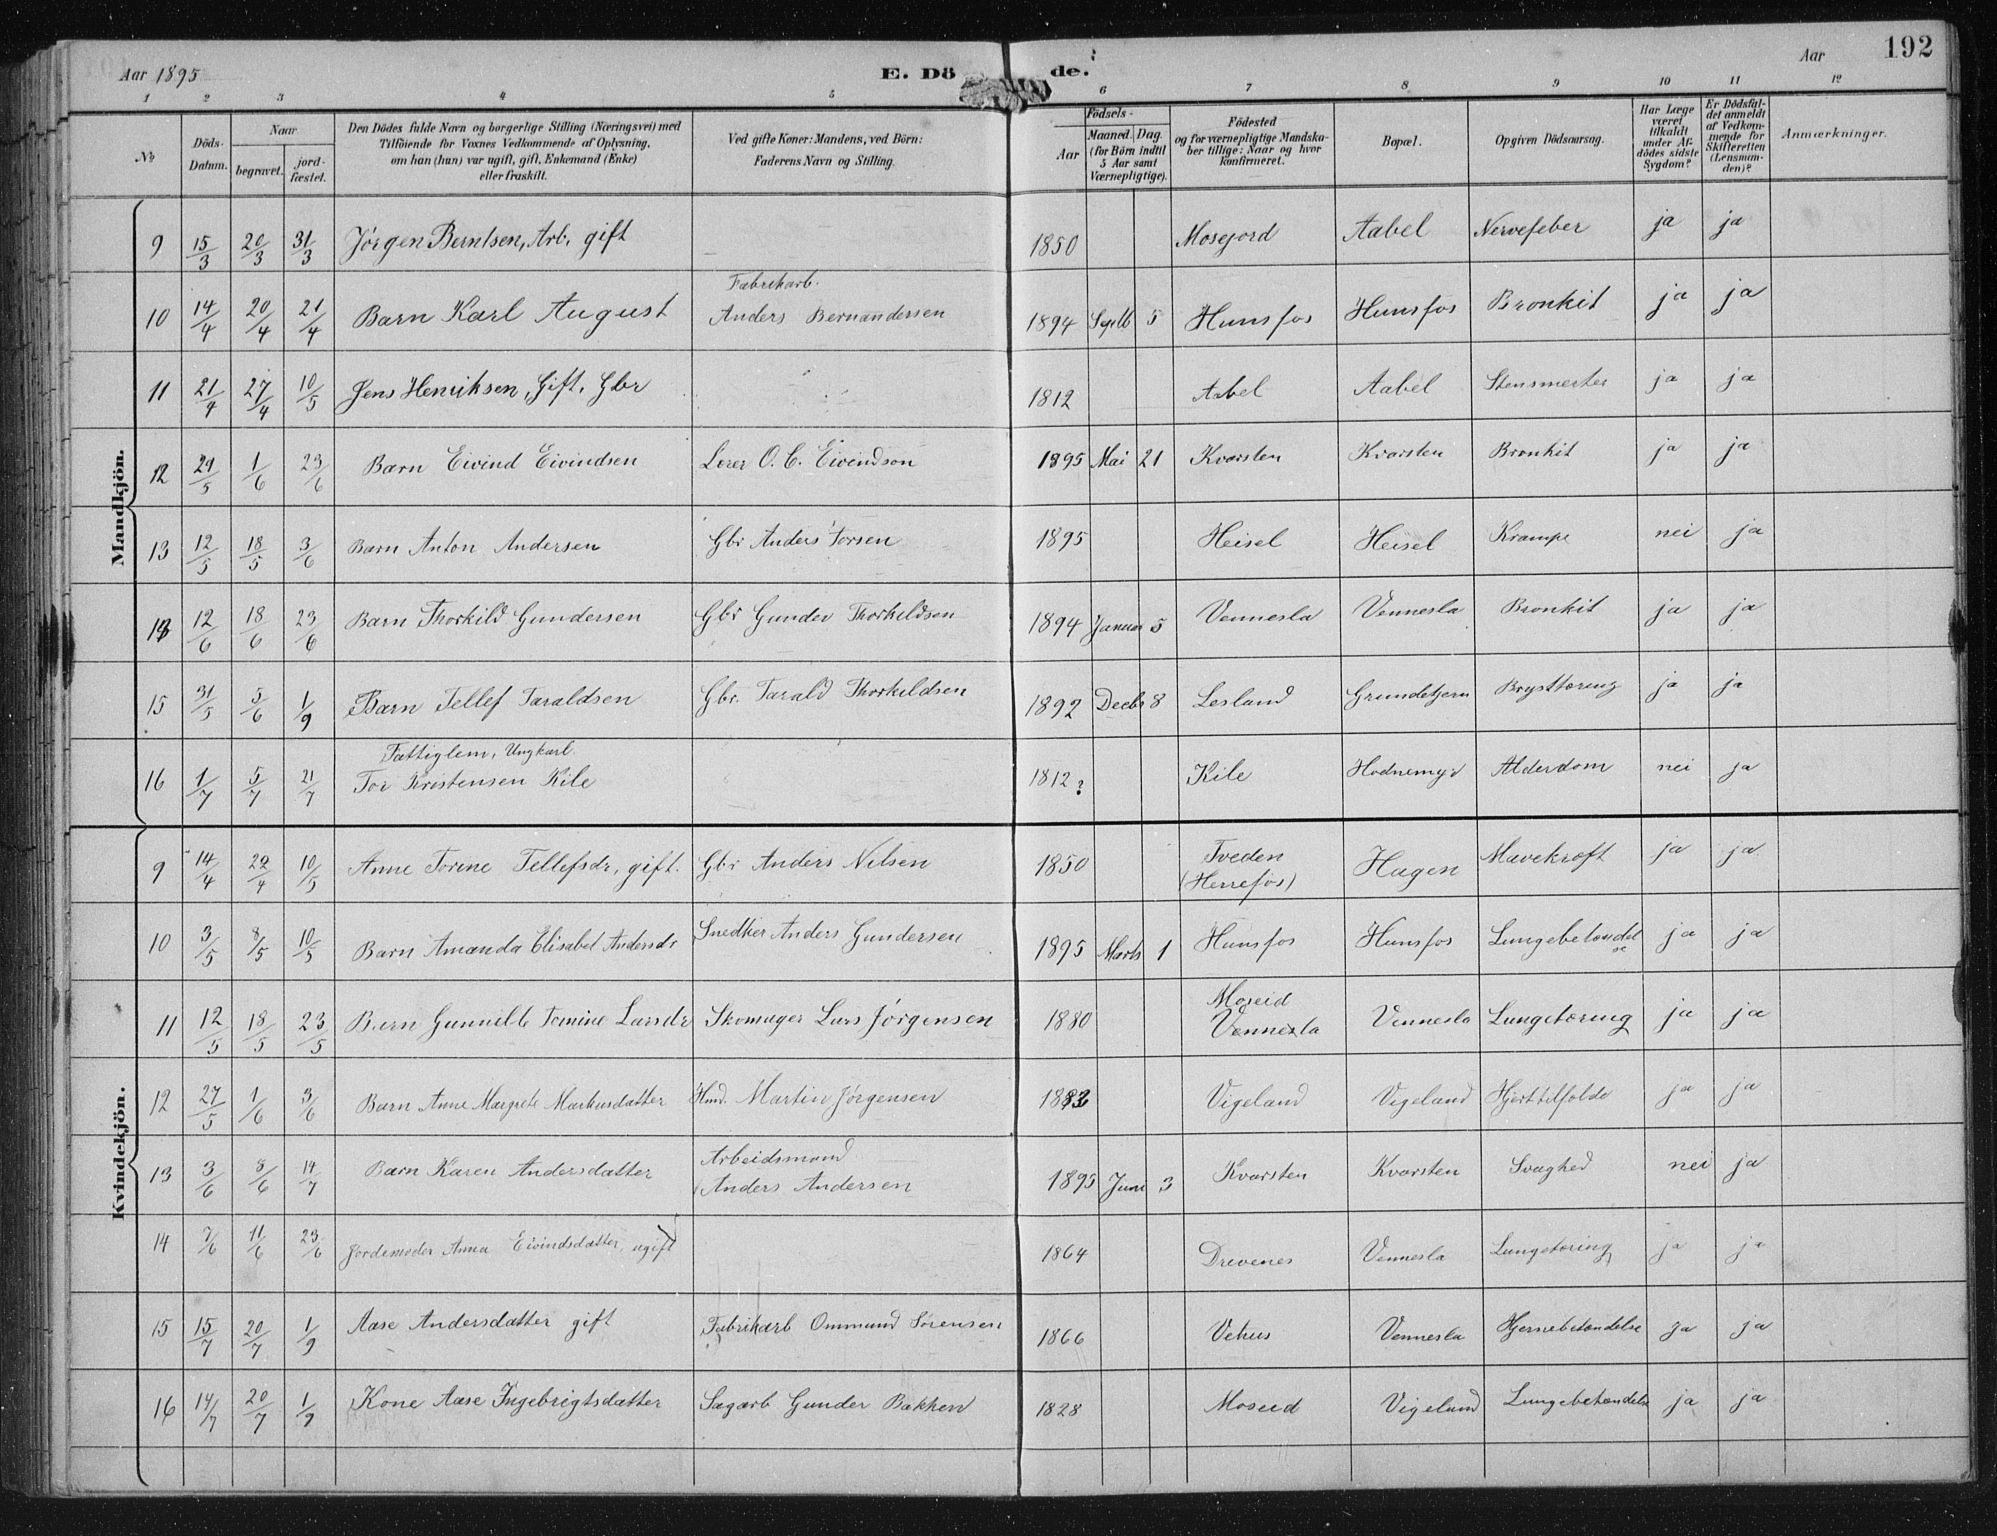 Aar 1895
E. Dö de.
Aar 192
1 2 3 4 5 6 7 8 9 10 11 12
No
Döds-Datum.
Naar
begravet.
jord-fæstet.
Den Dödes fulde Navn og borgerlige Stilling (Næringsvei) med
Tilföiende for Voxnes Vedkommende af Oplysning,
om han (hun) var ugift, gift, Enkemand (Enke)
eller fraskilt.
Ved gifte Koner: Mandens, ved Börn:
Faderens Navn og Stilling.
Födsels-
Aar
Maaned. Dag.
(for Börn indtil
5 Aar samt
Værnepligtige).
Födested
og for værnepligtige Mandska-
ber tillige: Naar og hvor
konfirmeret.
Bopæl.
Opgiven Dödsaarsag.
Har Læge
været
tilkaldt
under Af-
dödes sidste
Sygdom?
Er Dödsfal-
det anmeldt
af Vedkom-
mende for
Skifteretten
(Lensman-
den)?
Anmærkninger.
Mandkjön.
9 15/3 20/3 31/3 Jørgen Berntsen, Arb, gift 1850 Mosejord Aabel Nervefeber ja ja
Fabrikarb.
10 14/4 20/4 21/4 Barn Karl August Anders Bernandersen 1894 Septb 5 Hunsfos Hunsfos Bronkit ja ja
11 21/4 27/4 10/5 Jens Henriksen, Gift, Gbr 1812 Aabel Aabel Stensmerter ja ja
12 29/5 1/6 23/6 Barn Eivind Eivindsen Lærer O. C. Eivindson 1895 Mai 21 Kvarsten Kvarsten Bronkit ja ja
13 12/5 18/5 3/6 Barn Anton Andersen Gbr Anders Torsen 1895 Heisel Heisel Krampe nei ja
12/6 18/6 23/6 Barn Thorkild Gundersen Gbr Gunder Thorkildsen 1894 Januar 5 Vennesla Vennesla Bronkit ja ja
15 31/5 5/6 1/9 Barn Tellef Taraldsen Gbr. Tarald Thorkildsen 1892 Decbr 8 Lesland Grundetjern Brysttæring ja ja
Fattiglem, Ungkarl.
16 1/7 5/7 21/7 Tor Kristensen Kile 1812? Kile Hodnemyr Alderdom nei ja
Kvindekjön.
9 14/4 /4 10/5 Anne Torine Tellefsdr, gift. Gbr Anders Nilsen 1850 Tveden Hagen Mavekræft ja ja
(Herrefos)
10 3/5 8/5 10/5 Barn Amanda Elisabet Andersdr Snedker Anders Gundersen 1895 Marts 1 Hunsfos Hunsfos Lungebetændel
se ja ja
Moseid
11 12/5 18/5 23/5 Barn Gunnild Tomine Larsdr Skomager Lars Jørgensen 1880 Vennesla Vennesla Lungetæring ja ja
12 27/5 1/6 3/6 Barn Anne Margrete Markusdatter Hmd. Martin Jørgensen Vigeland Vigeland Hjerttilfælde ja ja
Arbeidsmand
13 3/6 8/6 14/7 Barn Karen Andersdatter Anders Andersen 1895 Juni 3 Kvarsten Kvarsten Svaghed nei ja
14 7/6 11/6 23/6 Jordemoder Anna Eivindsdatter, ugift 1864 Drevenes Vennesla Lungetæring ja ja
15 15/7 20/7 1/9 Aase Andersdatter gift Fabrikarb Ommund Sørensen 1866 Vehus Vennesla Hjernebetændelse ja ja
16 14/7 20/7 1/9 Kone Aase Ingebrigtsdatter Sagarb Gunder Bakken 1828 Moseid Vigeland Lungebetændelse ja ja